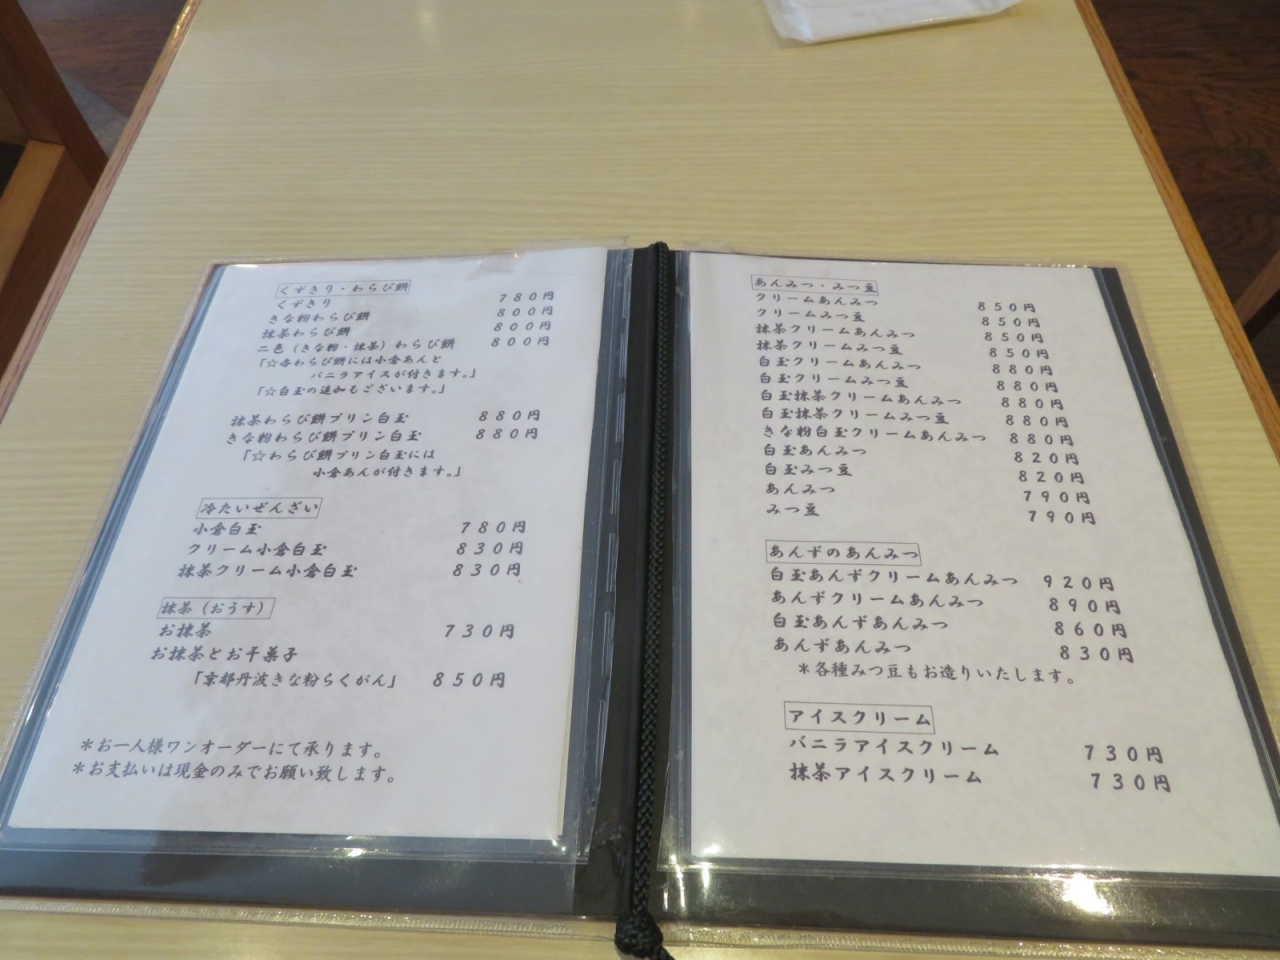 くずきり・わらび餅
くずきり 780円
きな粉わらび餅 800円
抹茶わらび餅 800円
二色（きな粉・抹茶）わらび餅 800円
「☆各わらび餅には小倉あんと
バニラアイスが付きます。」
「☆白玉の追加もございます。」
抹茶わらび餅プリン白玉 880円
きな粉わらび餅プリン白玉 880円
「☆わらび餅プリン白玉には
小倉あんが付きます。」
冷たいぜんざい
小倉白玉 780円
クリーム小倉白玉 830円
抹茶クリーム小倉白玉 830円
抹茶（おうす）
お抹茶 730円
お抹茶とお干菓子
「京都丹波きな粉らくがん」 850円
＊お一人様ワンオーダーにて承ります。
＊お支払いは現金のみでお願い致します。
あんみつ・みつ豆
クリームあんみつ 850円
クリームみつ豆 850円
抹茶クリームあんみつ 850円
抹茶クリームみつ豆 850円
白玉クリームあんみつ 880円
白玉クリームみつ豆 880円
白玉抹茶クリームあんみつ 880円
白玉抹茶クリームみつ豆 880円
きな粉白玉クリームあんみつ 880円
白玉あんみつ 820円
白玉みつ豆 820円
あんみつ 790円
みつ豆 790円
あんずのあんみつ
白玉あんずクリームあんみつ 920円
あんずクリームあんみつ 890円
白玉あんずあんみつ 860円
あんずあんみつ 830円
＊各種みつ豆もお造りいたします。
アイスクリーム
バニラアイスクリーム 730円
抹茶アイスクリーム 730円